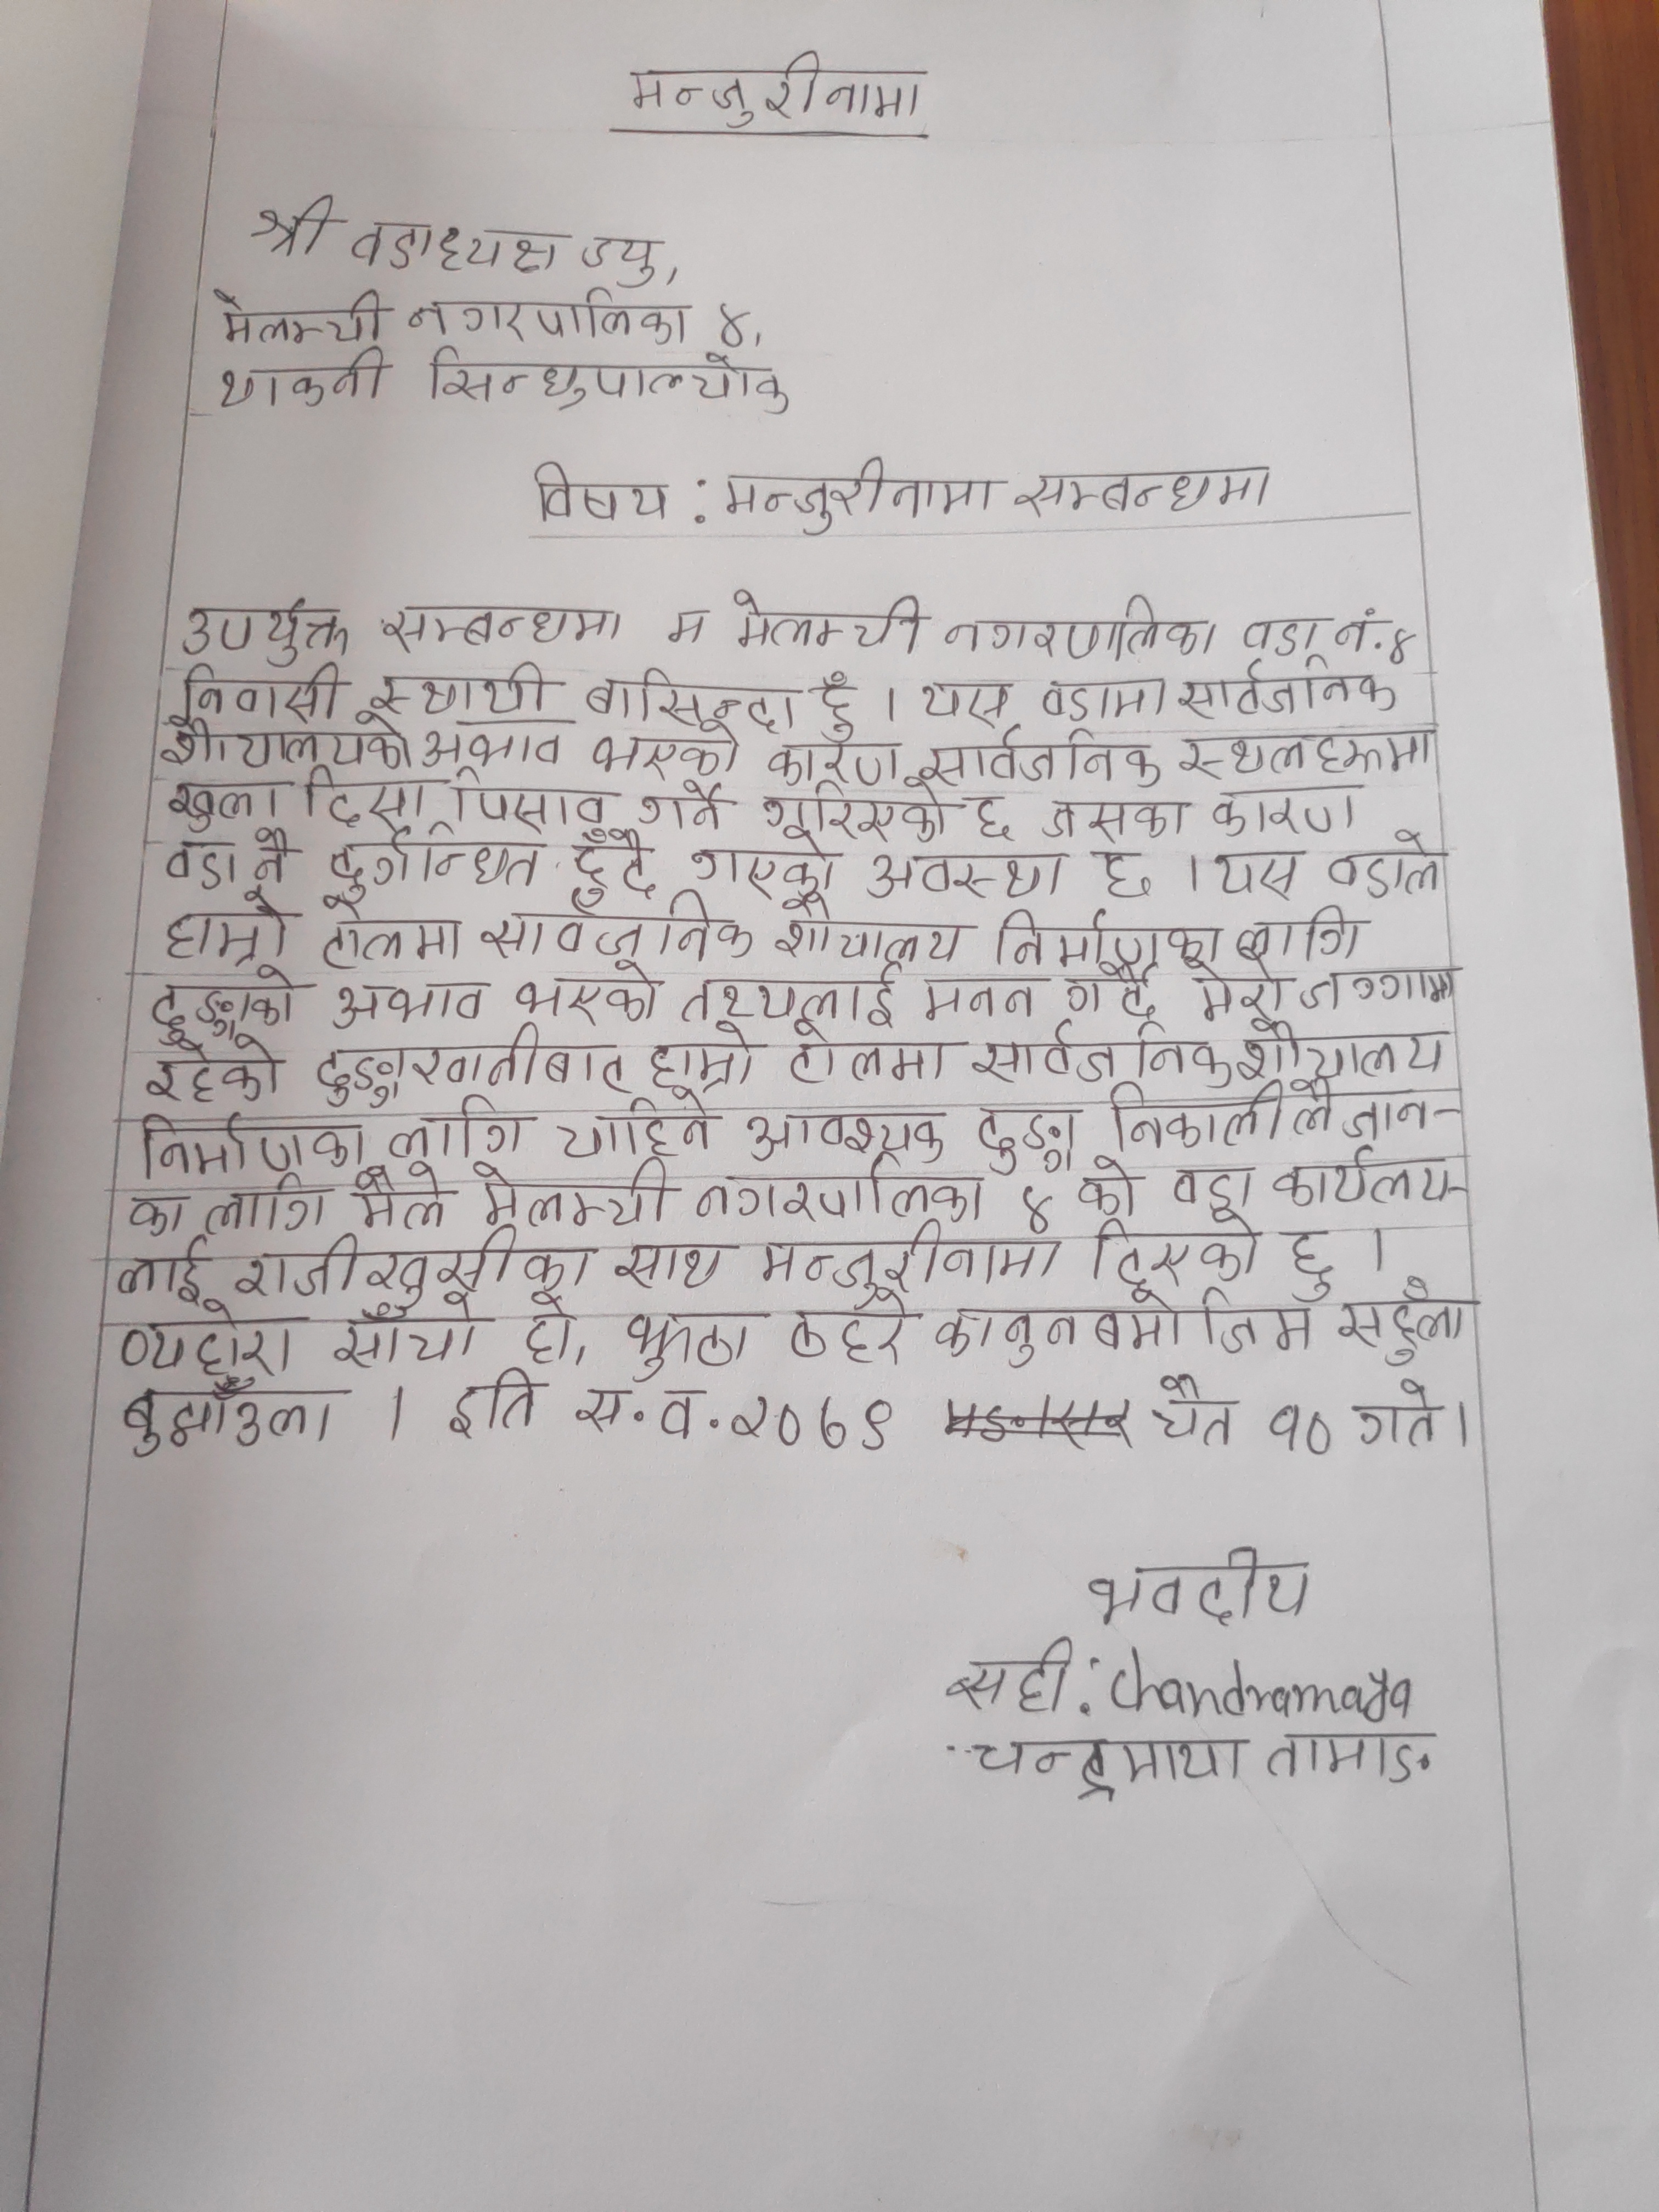 मन्जुरीनामा
श्री वडाध्यक्ष ज्यु,
मेलम्ची नगरपालिका ४,
थाकनी सिन्धुपाल्चोक
विषय : मन्जुरीनामा सम्बन्धमा
उपर्युक्त सम्बन्धमा म मेलम्ची नगरपालिका वडा नं. ४
निवासी स्थायी बासिन्दा हुँ । यस वडामा सार्वजनिक
शौचालयको अभाव भएको कारण सार्वजनिक स्थलहरूमा
खुला दिसा पिसाव गर्ने गरिएको छ जसका कारण
वडा नै दुर्गन्धित हुँदै गएको अवस्था छ । यस वडाले
हाम्रो टोलमा सार्वजनिक शौचालय निर्माणका लागि
ढुङ्गाको अभाव भएको तथ्यलाई मनन गर्दै मेरो जग्गामा
रहेको ढुङ्गाखानीबाट हाम्रो टोलमा सार्वजनिक शौचालय
निर्माणका लागि चाहिने आवश्यक ढुङ्गा निकाली लैजान-
का लागि मैले मेलम्ची नगरपालिका ४ को वडा कार्यलय-
लाई राजीखुसीका साथ मन्जुरीनामा दिएको छु ।
व्यहोरा साँचो हो, झुठा ठहरे कानुन बमोजिम सहुँला
बुझाउँला । इति स.व. २०७९ चैत १० गते ।
भवदीय
सही : Chandramaya
चन्द्रमाया तामाङ